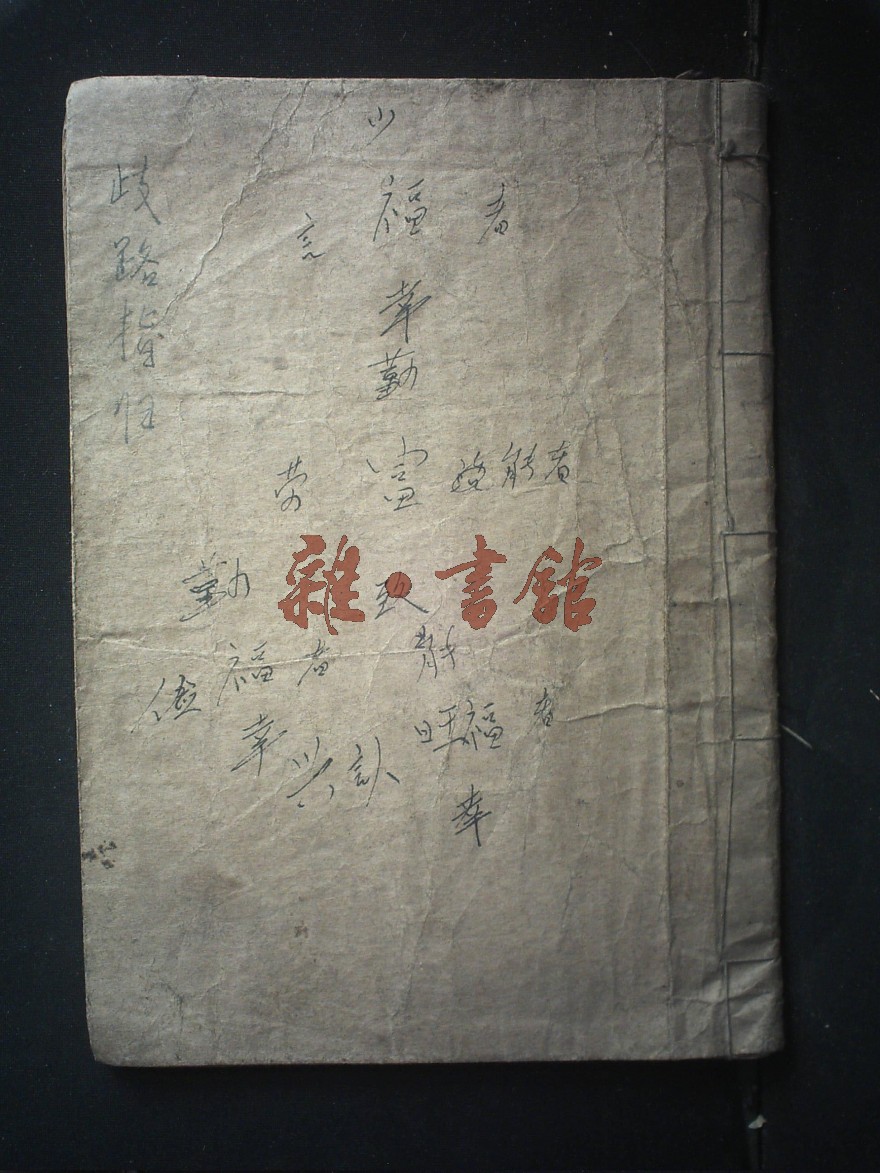 歧路指归
言 福 者
幸
勤
劳 富 能者
勤 致
俭 福 者 能
幸 旺福 者
兴
幸
雜·書館